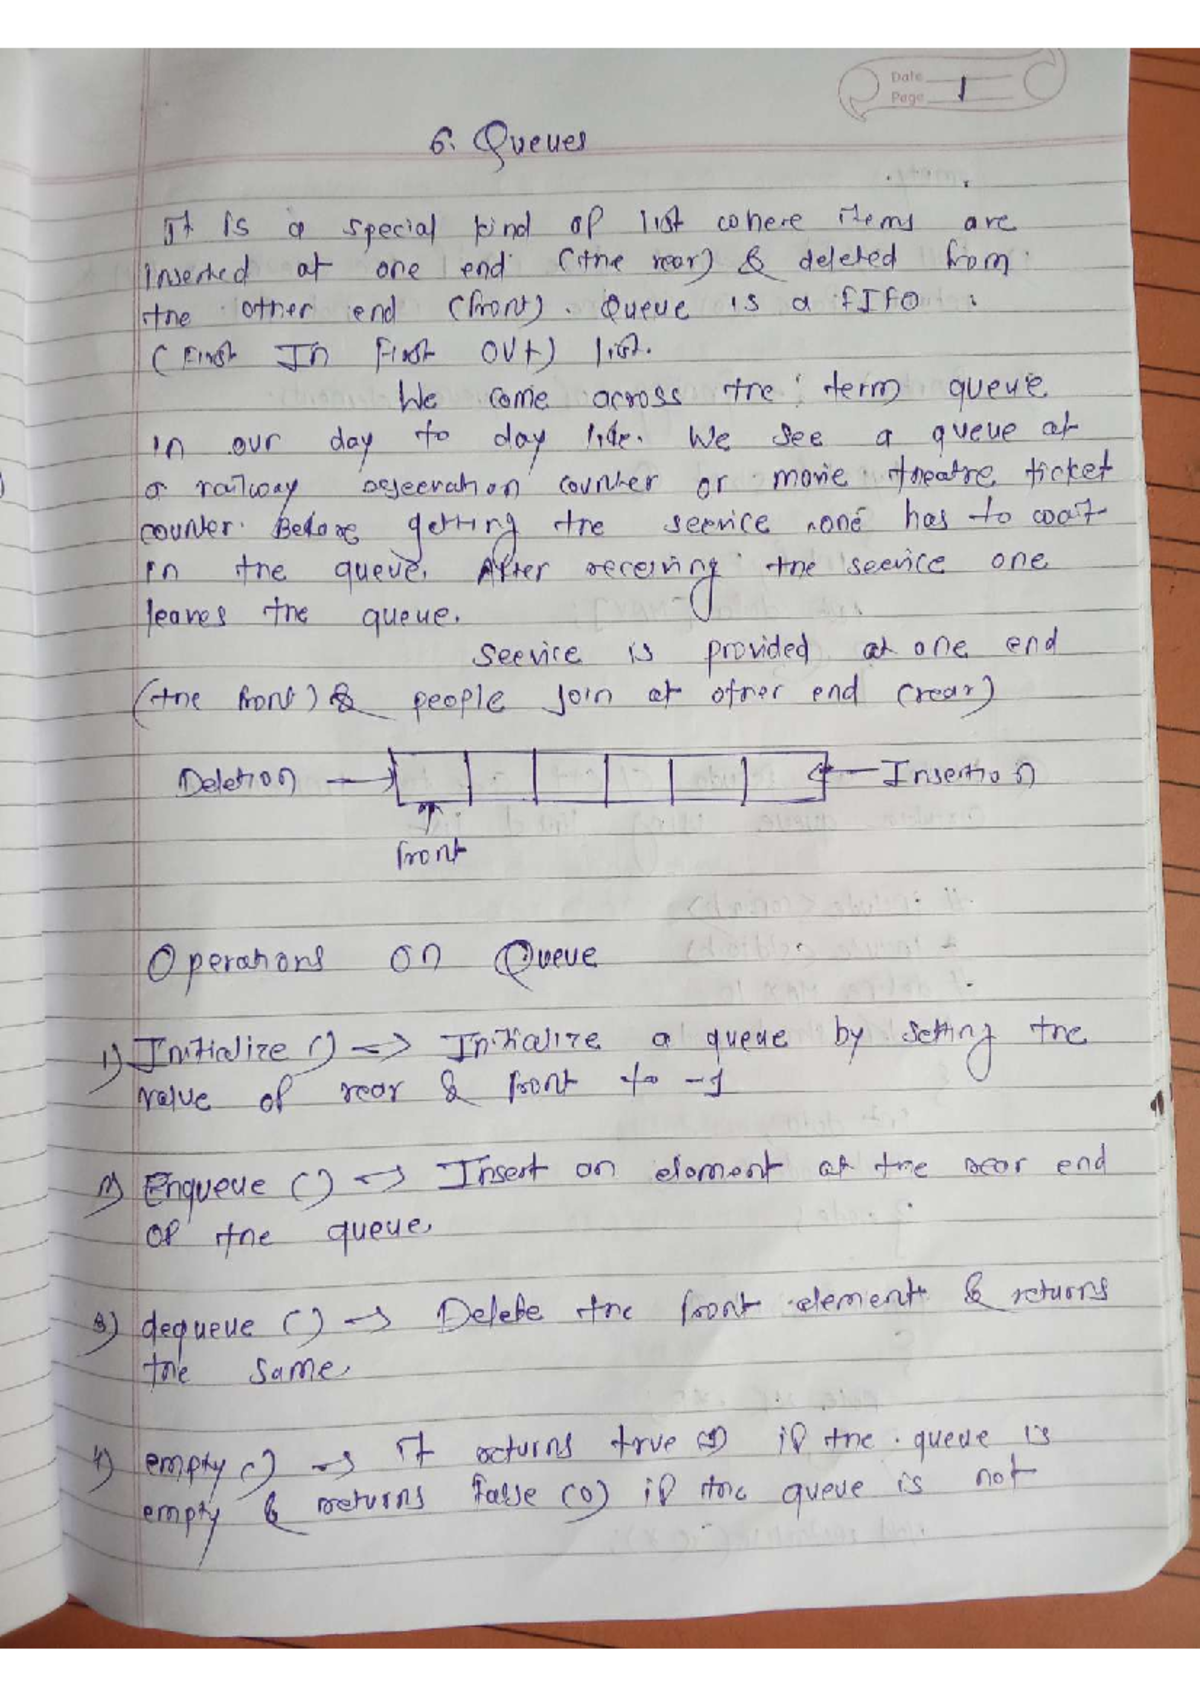 Date
Page 1
6. Queues
It is a special kind of list where items are
inserted at one end (the rear) & deleted from
the other end (front). Queue is a FIFO
(First In First Out) list.
We come across the term queue
in our day to day life. We see a queue at
a railway reservation counter or movie theatre ticket
counter. Before getting the service one has to wait
in the queue. After receiving the service one
leaves the queue.
Service is provided at one end
(the front) & people join at other end (rear)
Deletion → ← Insertion
front
Operations on Queue
1) Initialize () => Initialize a queue by setting the
value of rear & front to -1
2) Enqueue () => Insert an element at the rear end
of the queue.
3) dequeue () → Delete the front element & returns
the same.
4) empty () → It returns true (1) if the queue is
empty & returns false (0) if the queue is not